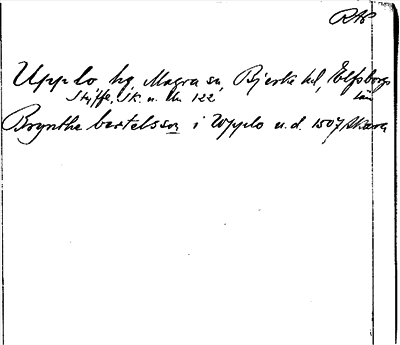 RAP
Upplo hg Magra sn, Bjerke hd, Elfsborgs
Styffe, Sk. u. Un 122 län
Brynthe bertelsson i Wpplo u.d. 1507 Skara